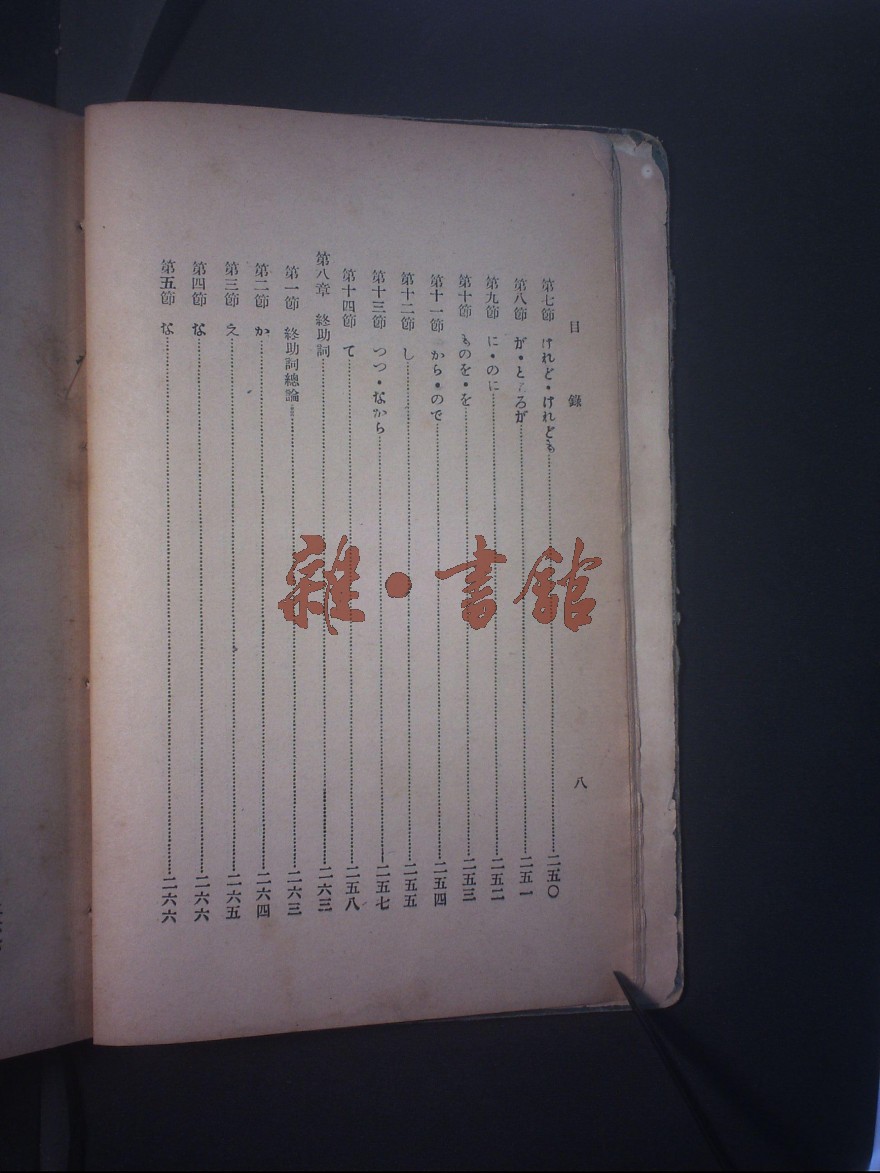 目錄
第七節 けれど・けれども 二五〇
第八節 が・ところが 二五一
第九節 に・のに 二五二
第十節 ものを・を 二五三
第十一節 から・ので 二五四
第十二節 し 二五五
第十三節 つつ・ながら 二五七
第十四節 て 二五八
第八章 終助詞 二六三
第一節 終助詞總論 二六三
第二節 か 二六四
第三節 え 二六五
第四節 な 二六六
第五節 な 二六六
八
雜・書館